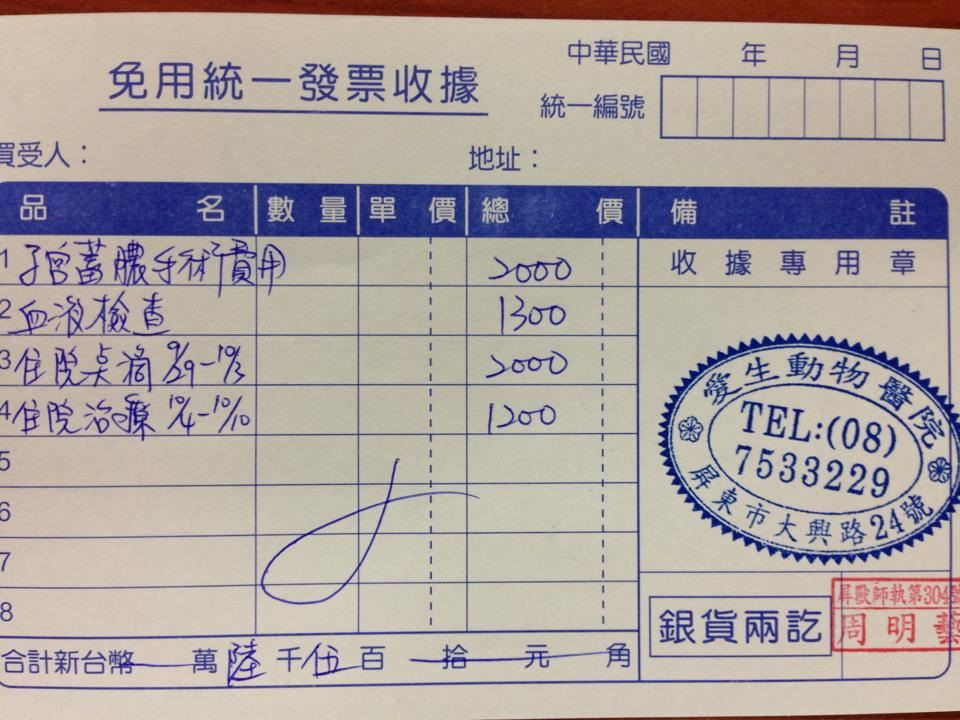 中華民國 年 月 日
免用統一發票收據
統一編號
買受人：
地址：
品 名 數 量 單 價 總 價 備 註
收 據 專 用 章
1 子宮蓄膿手術費用 2000
2 血液檢查 1300
3 住院点滴 9/29-10/3 2000
4 住院治療 10/4-10/10 1200
5
6
7
8
愛生動物醫院
TEL:(08)
7533229
屏東市大興路24號
合計新台幣 萬 陸 千 伍 百 拾 元 角
銀貨兩訖
周明藝